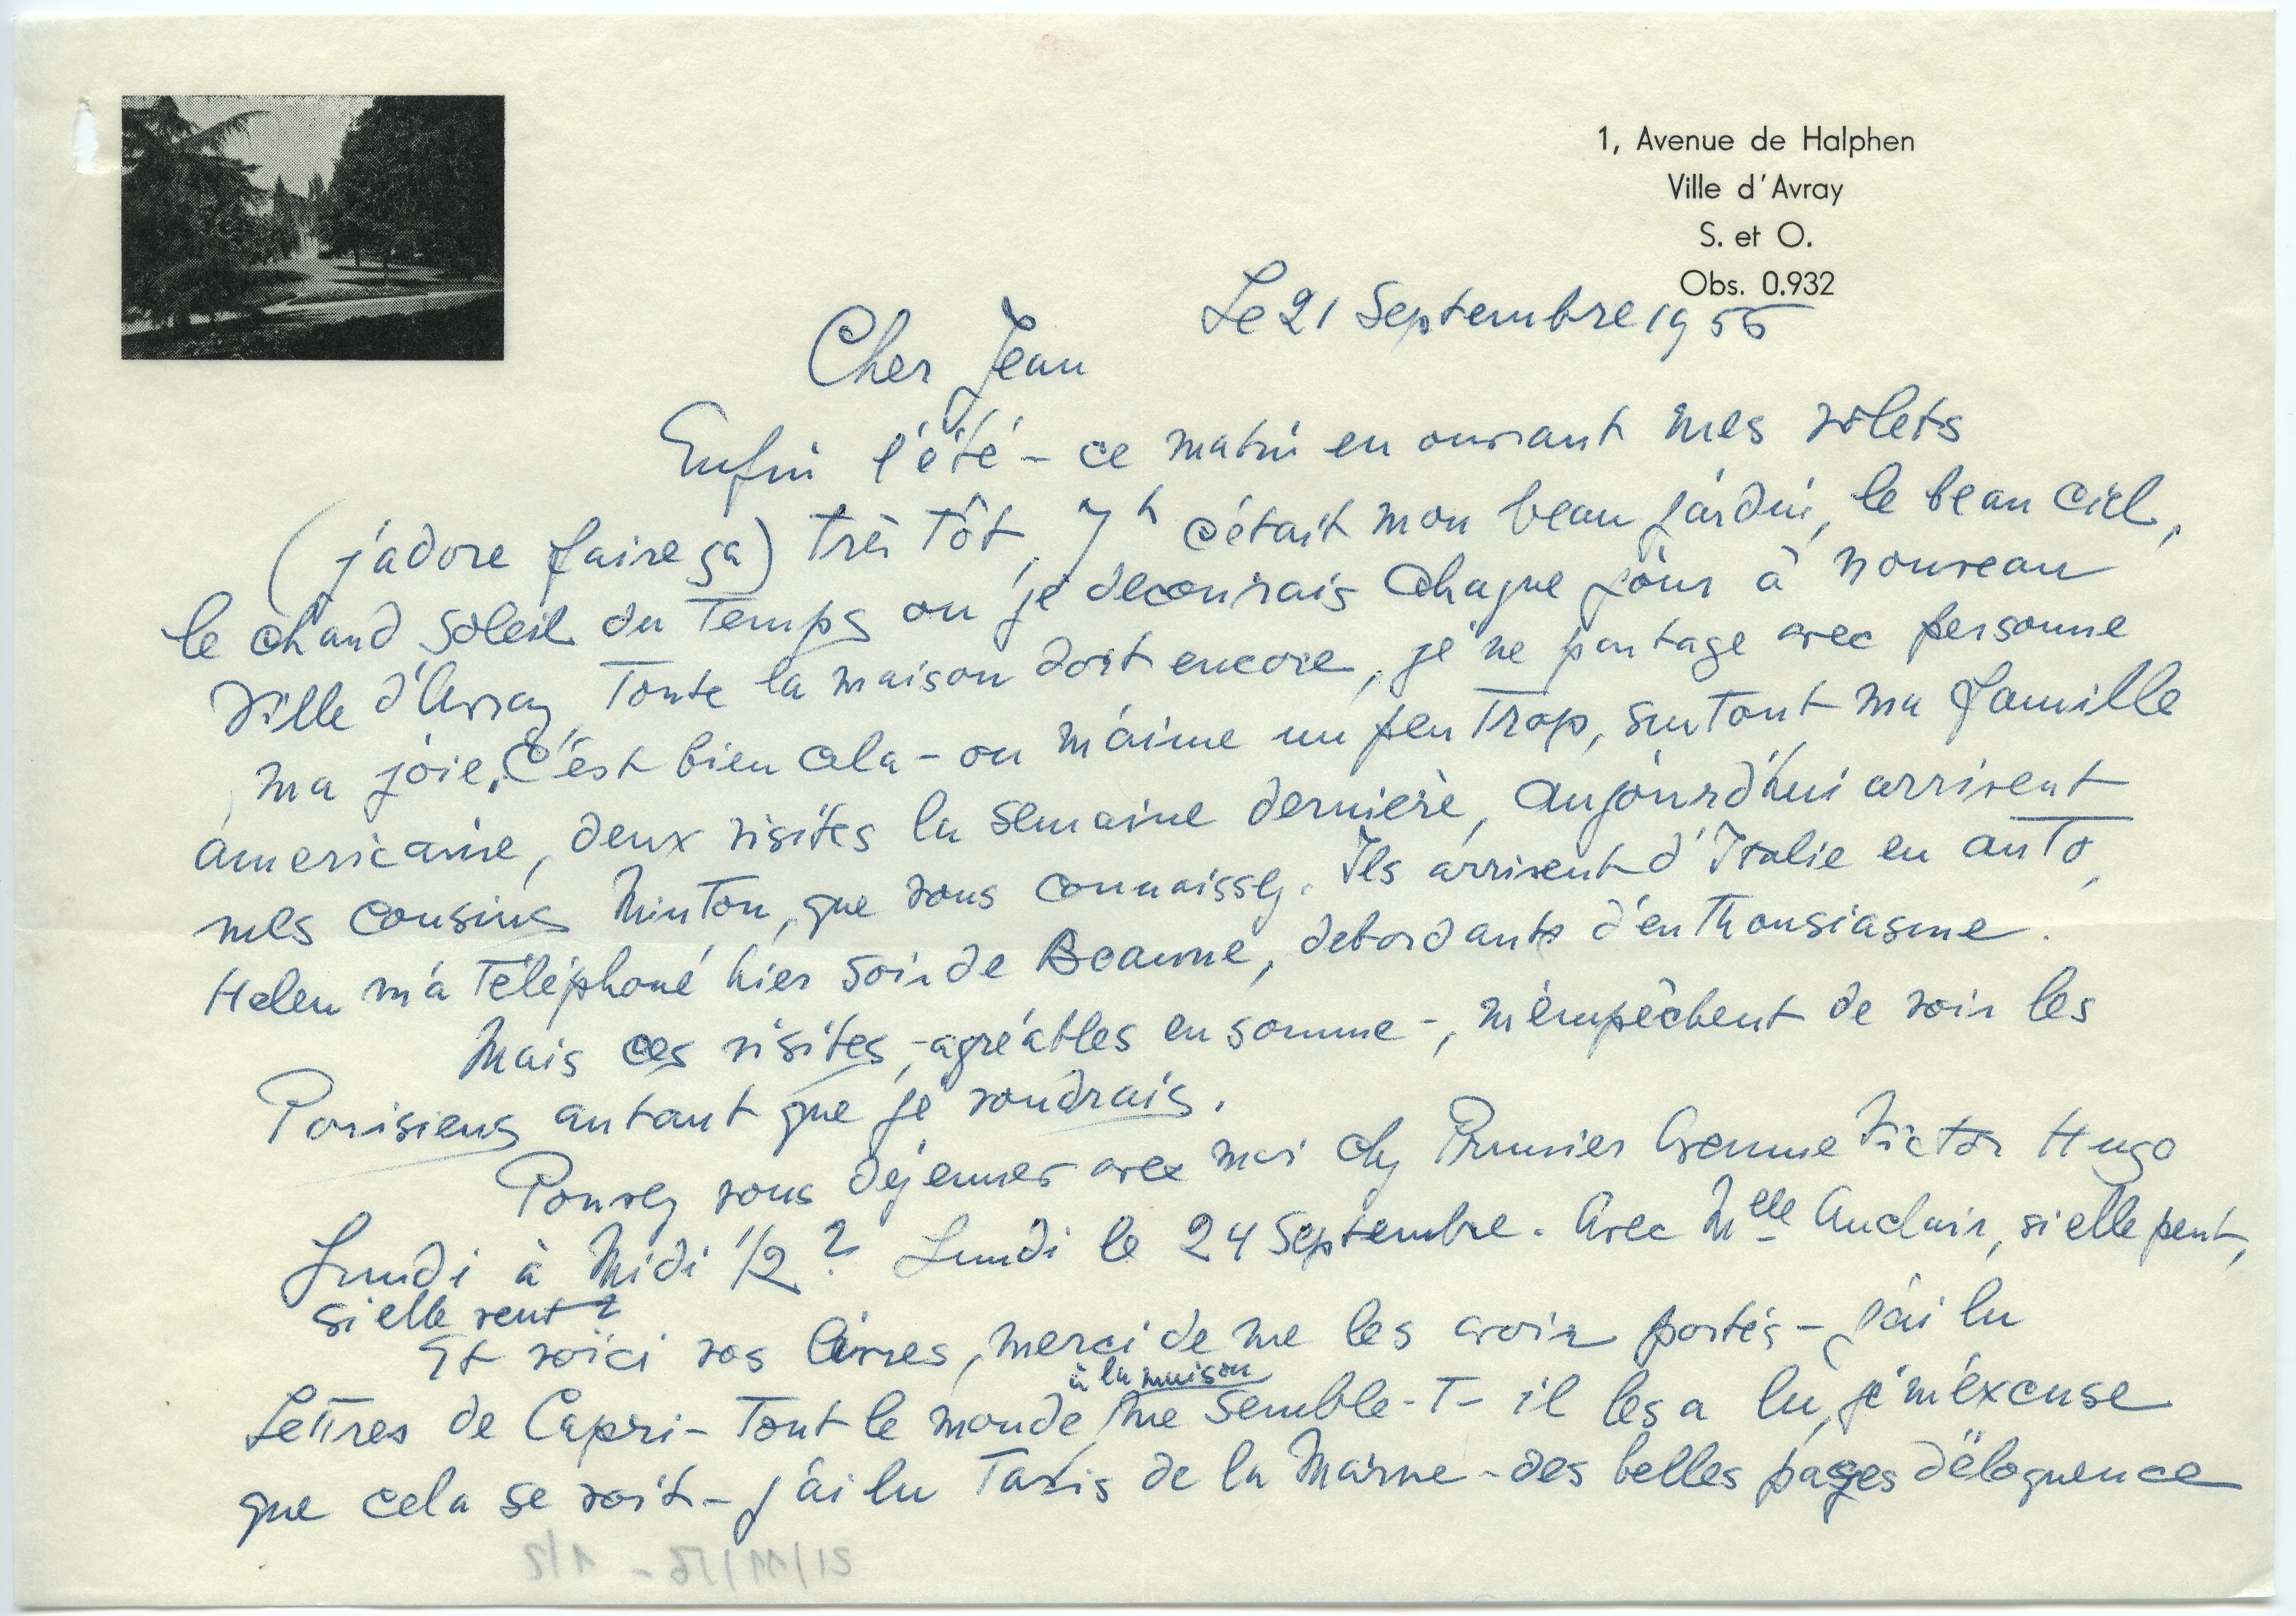 1, Avenue de Halphen
Ville d'Avray
S. et O.
Obs. 0.932
Le 21 Septembre 1956
Cher Jean
Enfin l'été - ce matin en ouvrant mes volets
(j'adore faire ça) très tôt, 7h c'était mon beau jardin, le beau ciel,
le chaud soleil du temps ou je decouvrais chaque jour à nouveau
Ville d'Avray. Toute la maison dort encore, je ne partage avec personne
ma joie. C'est bien cela - on m'aime un peu trop, surtout ma famille
americaine, deux visites la semaine dernière, aujourd'hui arrivent
mes cousins Minton, que vous connaissez. Ils arrivent d'Italie en auto,
Helen m'a téléphoné hier soir de Beaune, debordants d'enthousiasme.
Mais ces visites, - agréables en somme -, m'empêchent de voir les
Parisiens autant que je voudrais.
Pouvez vous déjeuner avec moi chez Prunier Avenue Victor Hugo
Lundi à Midi 1/2 ? Lundi le 24 Septembre. Avec Melle Auclair, si elle peut,
si elle veut ?
Et voici vos livres, merci de me les avoir portés - j'ai lu
à la maison
Lettres de Capri - Tout le monde, me semble-t-il les a lu, je m'excuse
que cela se voit - j'ai lu Taxis de la Marne - des belles pages d'éloquence
21/11/56 - 1/2